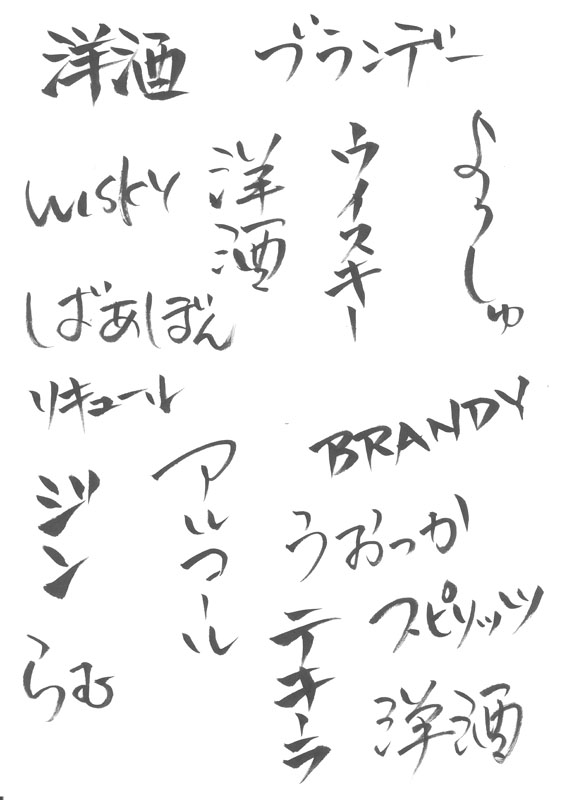 洋酒
ブランデー
wisky
洋酒
ウイスキー
ようしゅ
しばあぼん
リキュール
BRANDY
ジン
アルコール
うおっか
スピリッツ
テキーラ
らむ
洋酒